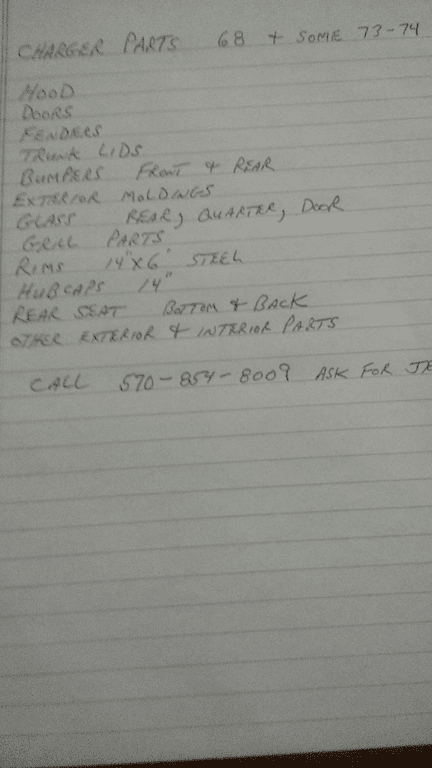 CHARGER PARTS 68 + SOME 73-74
HOOD
DOORS
FENDERS
TRUNK LIDS
BUMPERS FRONT & REAR
EXTERIOR MOLDINGS
GLASS REAR, QUARTER, DOOR
GRILL PARTS
RIMS 14"X6" STEEL
HUBCAPS 14"
REAR SEAT BOTTOM & BACK
OTHER EXTERIOR & INTERIOR PARTS
CALL 570-854-8009 ASK FOR